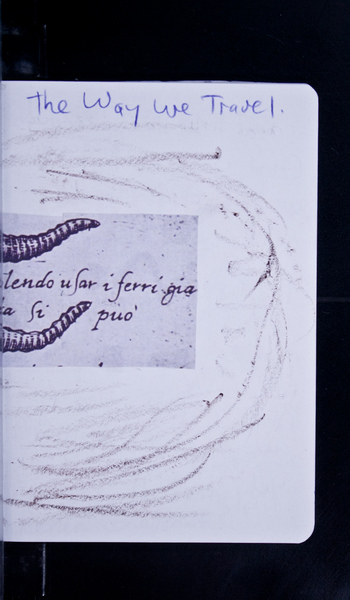 The Way We Travel.
lendo uſar i ferri gia
ſi può